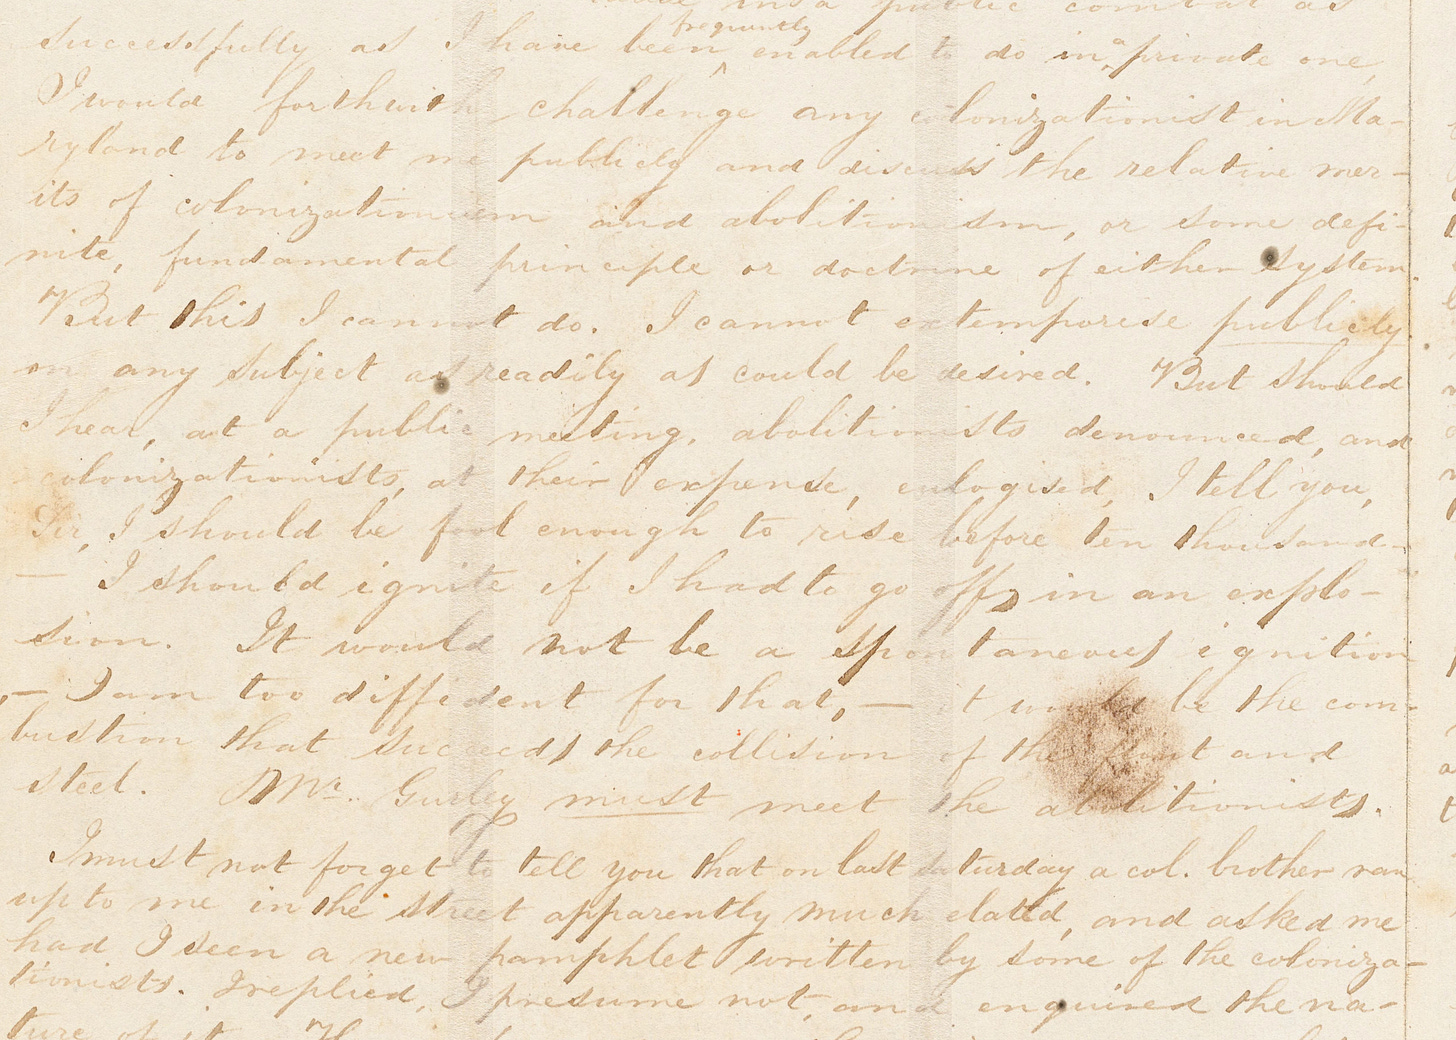 in a public combat as
successfully as I have been frequently enabled to do in a private one,
I would forthwith challenge any colonizationist in Ma-
ryland to meet me publicly and discuss the relative mer-
its of colonizationism and abolitionism, or some defi-
nite, fundamental principle or doctrine of either system.
But this I cannot do. I cannot extemporise publicly
on any subject as readily as could be desired. But should
I hear, at a public meeting, abolitionists denounced, and
colonizationists, at their expense, eulogised, I tell you,
Sir, I should be fool enough to rise before ten thousand
— I should ignite if I had to go off, in an explo-
sion. It would not be a spontaneous ignition
,— I am too diffident for that, — it would be the com-
bustion that succeeds the collision of the flint and
steel. Mr. Gurley must meet the abolitionists.
I must not forget to tell you that on last saturday a col. brother ran
up to me in the street apparently much elated, and asked me
had I seen a new pamphlet written by some of the coloniza-
tionists. I replied, I presume not, and enquired the na-
ture of it.